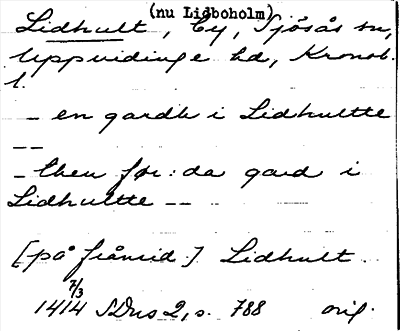 (nu Lidboholm)
Lidhult, by, Sjösås sn,
Uppvidinge hd, Kronob.
l.
– en gardh i Lidhultte
– –
– then för:da gard i
Lidhultte – –
[på frånsid.] Lidhult.
7/3
1414 SDns 2, s. 788 orig.